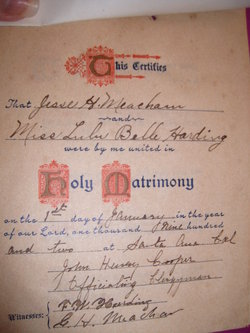 This Certifies
That Jesse H Meacham
and
Miss Lulu Belle Harding
were by me united in
Holy Matrimony
on the 1st day of January in the year
of our Lord, one thousand Nine hundred
and two at Santa Ana Cal
John Henry Cooper
Officiating Clergyman
Witnesses: F W Harding
C H Meacham